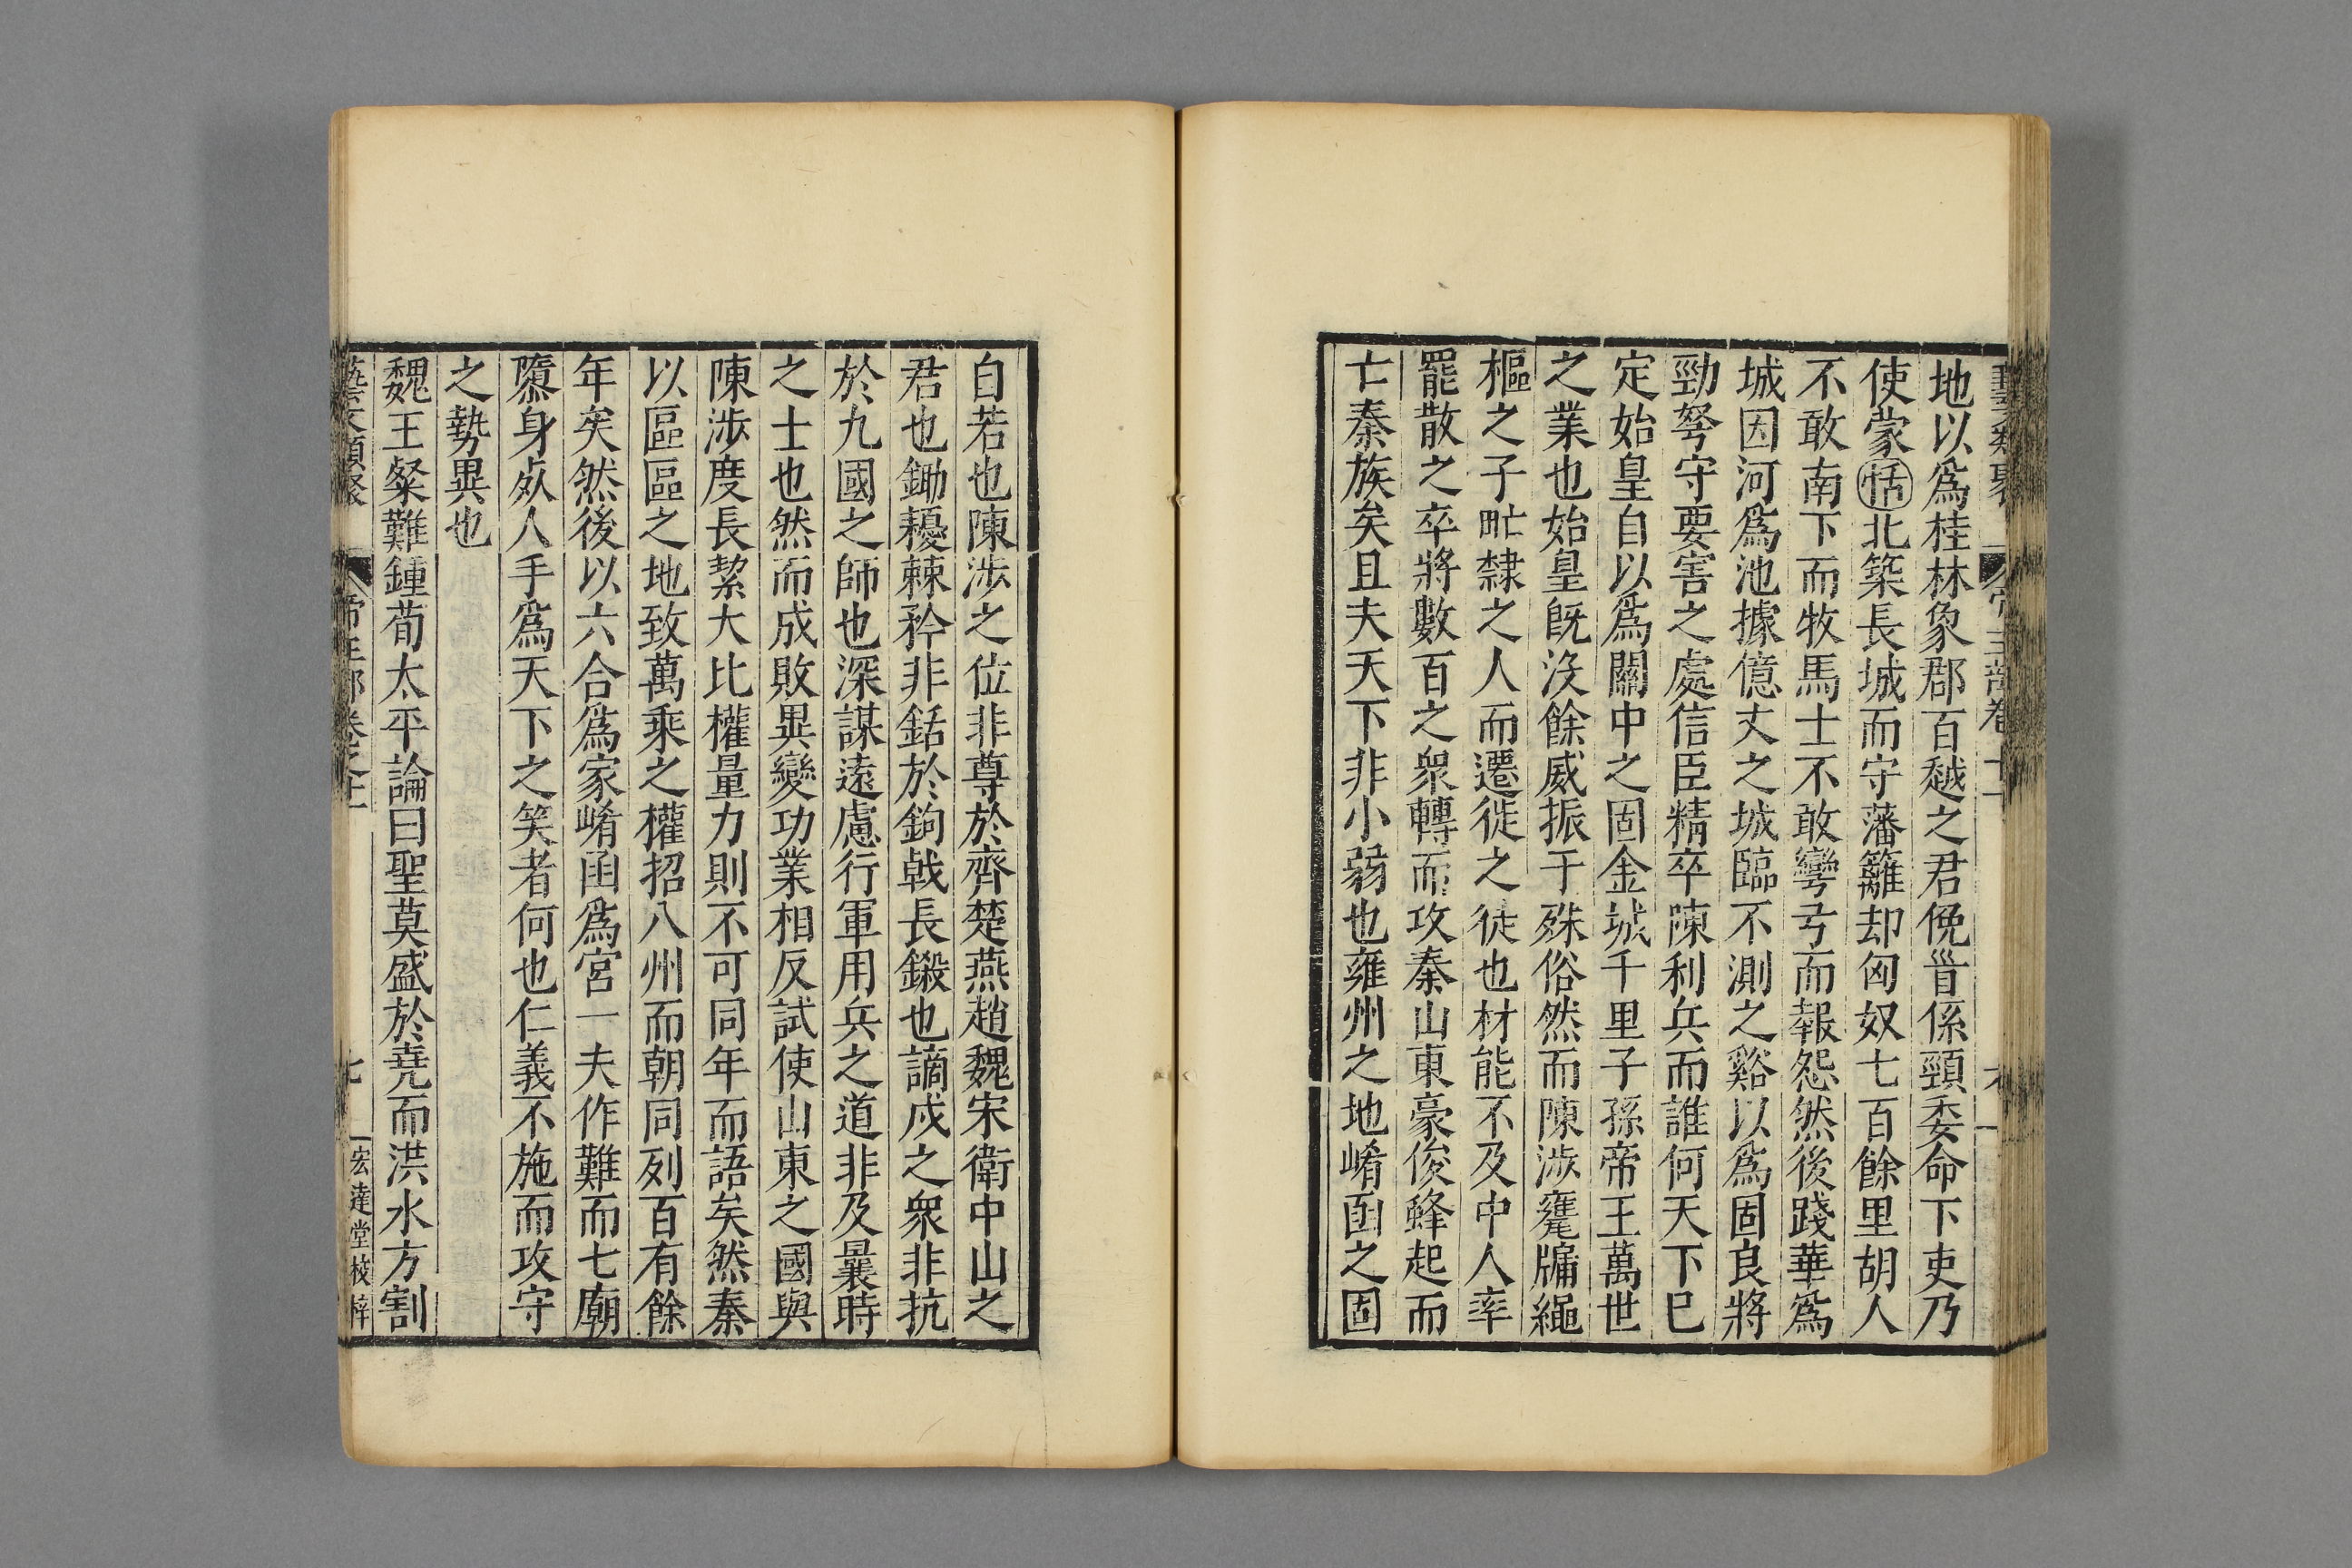 地以爲桂林象郡百越之君俛首係頸委命下吏乃
使蒙恬北築長城而守藩籬却匈奴七百餘里胡人
不敢南下而牧馬士不敢彎弓而報怨然後踐華爲
城因河爲池據億丈之城臨不測之谿以爲固良將
勁弩守要害之處信臣精卒陳利兵而誰何天下巳
定始皇自以爲關中之固金城千里子孫帝王萬世
之業也始皇旣沒餘威振于殊俗然而陳涉甕牖繩
樞之子甿隸之人而遷徙之徒也材能不及中人率
罷散之卒將數百之衆轉而攻秦山東豪俊蜂起而
亡秦族矣且夫天下非小弱也雍州之地崤函之固
自若也陳涉之位非尊於齊楚燕趙魏宋衛中山之
君也鋤耰棘矜非銛於鉤戟長鎩也謫戍之衆非抗
於九國之師也深謀遠慮行軍用兵之道非及曩時
之士也然而成敗異變功業相反試使山東之國與
陳涉度長絜大比權量力則不可同年而語矣然秦
以區區之地致萬乘之權招八州而朝同列百有餘
年矣然後以六合爲家崤函爲宮一夫作難而七廟
隳身死人手爲天下之笑者何也仁義不施而攻守
之勢異也
魏王粲難鍾荀太平論曰聖莫盛於堯而洪水方割
藝文類聚 帝王部卷之十一 七 宏達堂校梓